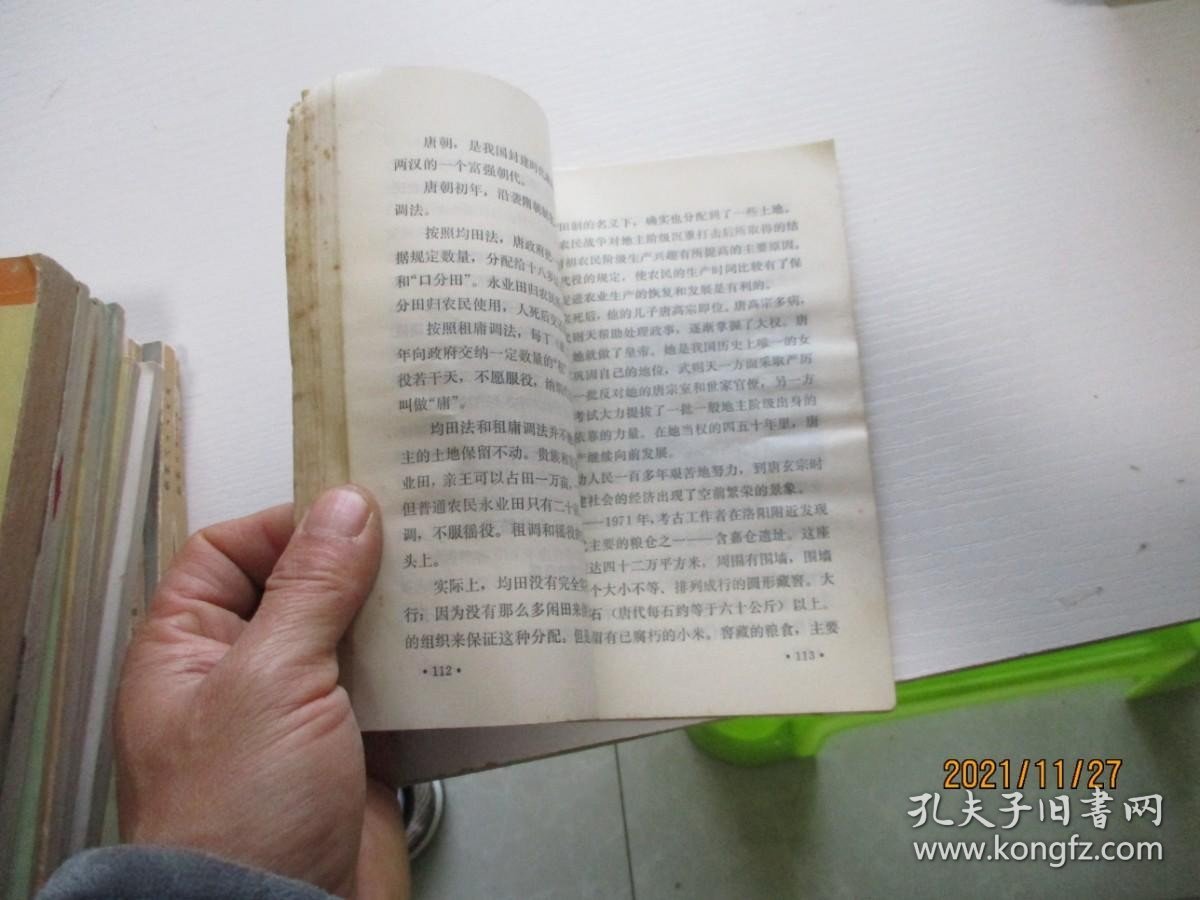 唐朝，是我国封建时代
两汉的一个富强朝代。
唐朝初年，沿袭隋朝
调法。
按照均田法，唐政府把
据规定数量，分配给十八岁
和“口分田”。永业田归农民
分田归农民使用，人死后交
按照租庸调法，每丁
年向政府交纳一定数量的“
役若干天，不愿服役，
叫做“庸”。
均田法和租庸调法并不
主的土地保留不动。贵族和
业田，亲王可以占田一万亩，
但普通农民永业田只有二十
调，不服徭役。租调和徭役
头上。
实际上，均田没有完全
行；因为没有那么多闲田来
的组织来保证这种分配。但
·112·
田制的名义下，确实也分配到了一些土地。
农民战争对地主阶级沉重打击后所取得的结
初农民阶级生产兴趣有所提高的主要原因。
代役的规定，使农民的生产时间比较有了保
促进农业生产的恢复和发展是有利的。
死后，他的儿子唐高宗即位。唐高宗多病，
则天帮助处理政事，逐渐掌握了大权。唐
她就做了皇帝。她是我国历史上唯一的女
巩固自己的地位，武则天一方面采取严厉
一批反对她的唐宗室和世家官僚，另一方
考试大力提拔了一批一般地主阶级出身的
依靠的力量。在她当权的四五十年里，唐
产继续向前发展。
动人民一百多年艰苦地努力，到唐玄宗时
建社会的经济出现了空前繁荣的景象。
——1971年，考古工作者在洛阳附近发现
主要的粮仓之一——含嘉仓遗址。这座
达四十二万平方米，周围有围墙，围墙
个大小不等、排列成行的圆形藏窖。大
石（唐代每石约等于六十公斤）以上。
留有已腐朽的小米。窖藏的粮食，主要
·113·
2021/11/27
孔夫子旧书网
www.kongfz.com